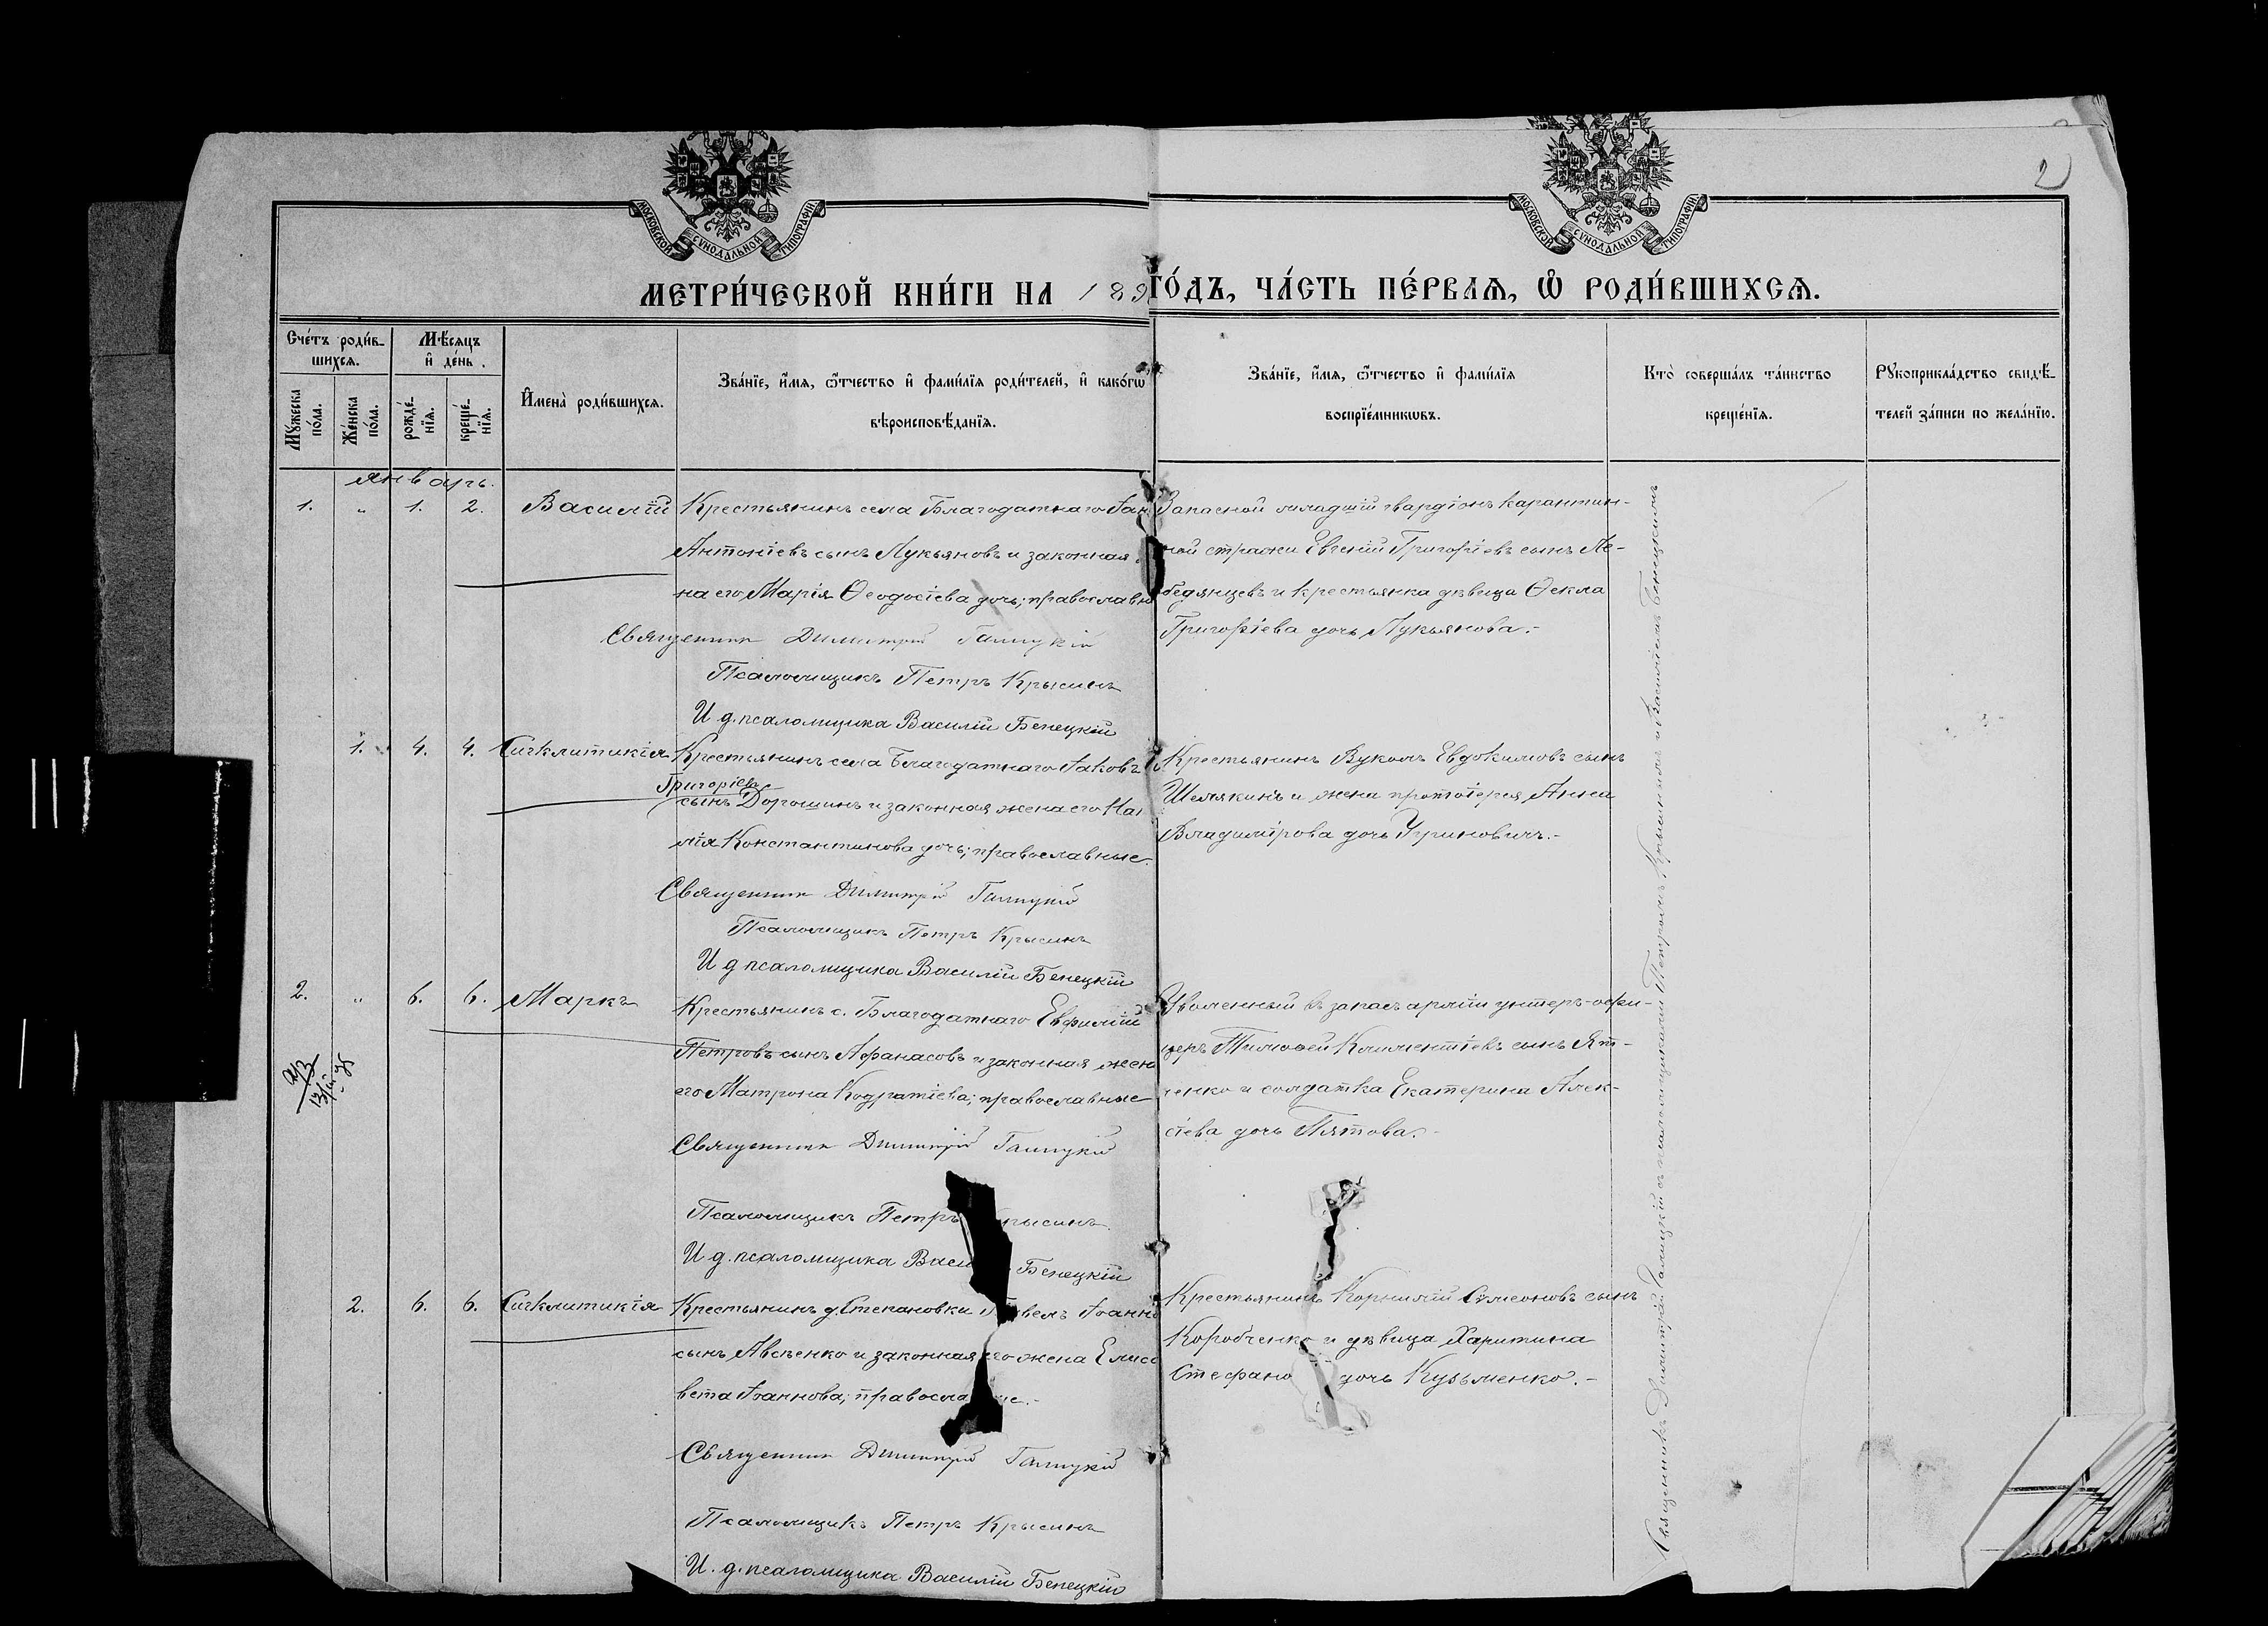 2
МОСКОВСКОЙ СѴНОДАЛЬНОЙ ТИПОГРАФІИ
МОСКОВСКОЙ СѴНОДАЛЬНОЙ ТИПОГРАФІИ
МЕТРИ́ЧЕСКОЙ КНИ́ГИ НА 189 ГО́ДЪ, ЧА́СТЬ ПЕ́РВАѦ, Ѡ҆ РОДИ́ВШИХСѦ.
Сче́тъ роди́в-
шихсѧ.
Мѣ́сѧцъ
и҆ де́нь.
Мꙋ́жеска по́ла.
Же́нска по́ла.
рожде́-нїѧ.
креще́-нїѧ.
И҆мена̀ роди́вшихсѧ.
Зва́нїе, и҆́мѧ, ѻ҆́тчество и҆ фами́лїѧ роди́телей, и҆ како́гѡ
вѣроисповѣ́данїѧ.
Зва́нїе, и҆́мѧ, ѻ҆́тчество и҆ фами́лїѧ
воспрїе́мникѡвъ.
Кто̀ соверша́лъ та́инство
креще́нїѧ.
Рꙋкоприкла́дство свидѣ́-
телей за́писи по жела́нїю.
Январь.
1. " 1. 2. Василій
Крестьянинъ села Благодатнаго
Антоніевъ сынъ Лукьяновъ и законная
на его Марія Ѳеодосіева дочь; православн
Священник Димитрій Галицкій
Псаломщикъ Петръ Крысинъ
И д. псаломщика Василій Бенецкій
Запасной младшій гвардіонъ карантин-
ной стражи Евгеній Григоріевъ сынъ Ле-
бедянцевъ и крестьянка дѣвица Ѳекла
Григоріева дочь Лукьянова.-
1. 4. 4. Сигклитикія
Крестьянинъ села Благодатнаго Іаковъ
Григоріевъ
сынъ Дорошинъ и законная жена его
лія Константинова дочь; православные.
Священник Димитрій Галицкій
Псаломщикъ Петръ Крысинъ
И д псаломщика Василій Бенецкій
Крестьянинъ Вуколъ Евдокимовъ сынъ
Шемякинъ и жена протоіерея Анна
Владимірова дочь Уриновичъ.-
2. " 6. 6. Маркъ
Крестьянинъ с. Благодатнаго Евфимій
Петровъ сынъ Афанасовъ и законная жена
его Матрона Кодратіева; православные
Священник Димитрій Галицкій
Псаломщикъ Петръ рысинъ
И д. псаломщика Васи Бенецкій
Уволенный въ запасъ арміи унтеръ-офи-
церъ Тимоѳей Климентіевъ сынъ Ят-
ченко и солдатка Екатерина Алек-
сіева дочь Пятова.-
2. 6. 6. Сигклитикія
Крестьянинъ д. Степановки Павелъ Іоанно
сынъ Авсѣенко и законная его жена Елиса
вета Іоаннова; православ ые.-
Священник Димитрій Галицкій
Псаломщикъ Петръ Крысинъ
И. д. псаломщика Василій Бенецкій
Крестьянинъ Корнилій Сѵмеоновъ сынъ
Коробченко и дѣвица Харитина
Стефано дочь Кузьменко.-
Священникъ Димитрій Галицкій съ псаломщиками Петромъ Крысинымъ и Василіемъ Бенецкимъ